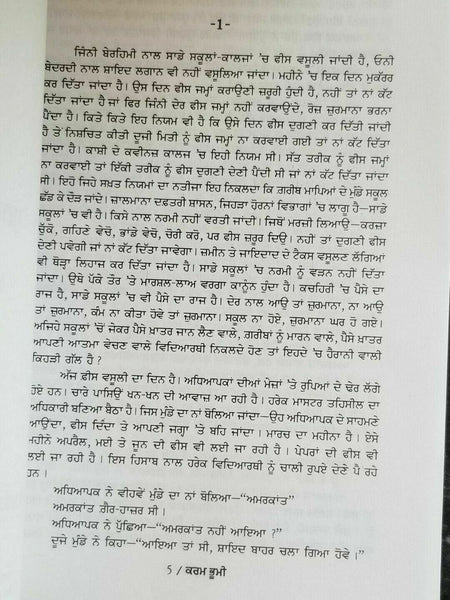 -1-
ਜਿੰਨੀ ਬੇਰਹਿਮੀ ਨਾਲ ਸਾਡੇ ਸਕੂਲਾਂ-ਕਾਲਜਾਂ 'ਚ ਫੀਸ ਵਸੂਲੀ ਜਾਂਦੀ ਹੈ, ਓਨੀ
ਬੇਦਰਦੀ ਨਾਲ ਸ਼ਾਇਦ ਲਗਾਨ ਵੀ ਨਹੀਂ ਵਸੂਲਿਆ ਜਾਂਦਾ। ਮਹੀਨੇ 'ਚ ਇਕ ਦਿਨ ਮੁਕੱਰਰ
ਕਰ ਦਿੱਤਾ ਜਾਂਦਾ ਹੈ। ਉਸ ਦਿਨ ਫੀਸ ਜਮ੍ਹਾਂ ਕਰਾਉਣੀ ਜ਼ਰੂਰੀ ਹੁੰਦੀ ਹੈ, ਨਹੀਂ ਤਾਂ ਨਾਂ ਕੱਟ
ਦਿੱਤਾ ਜਾਂਦਾ ਹੈ ਜਾਂ ਫਿਰ ਜਿੰਨੀ ਦੇਰ ਫੀਸ ਜਮ੍ਹਾਂ ਨਹੀਂ ਕਰਵਾਉਂਦੇ, ਰੋਜ਼ ਜ਼ੁਰਮਾਨਾ ਭਰਨਾ
ਪੈਂਦਾ ਹੈ। ਕਿਤੇ ਕਿਤੇ ਇਹ ਨਿਯਮ ਵੀ ਹੈ ਕਿ ਉਸੇ ਦਿਨ ਫੀਸ ਦੁਗਣੀ ਕਰ ਦਿੱਤੀ ਜਾਂਦੀ
ਹੈ ਤੇ ਨਿਸ਼ਚਿਤ ਕੀਤੀ ਦੂਜੀ ਮਿਤੀ ਨੂੰ ਫੀਸ ਜਮ੍ਹਾਂ ਨਾ ਕਰਵਾਈ ਗਈ ਤਾਂ ਨਾਂ ਕੱਟ ਦਿੱਤਾ
ਜਾਂਦਾ ਹੈ। ਕਾਸ਼ੀ ਦੇ ਕਵੀਨਜ਼ ਕਾਲਜ 'ਚ ਇਹੀ ਨਿਯਮ ਸੀ। ਸੱਤ ਤਰੀਕ ਨੂੰ ਫੀਸ ਜਮ੍ਹਾਂ
ਨਾ ਕਰਵਾਈ ਤਾਂ ਇੱਕੀ ਤਰੀਕ ਨੂੰ ਫੀਸ ਦੁਗਣੀ ਦੇਣੀ ਪੈਂਦੀ ਸੀ ਜਾਂ ਨਾਂ ਕੱਟ ਦਿੱਤਾ ਜਾਂਦਾ
ਸੀ। ਇਹੋ ਜਿਹੇ ਸਖ਼ਤ ਨਿਯਮਾਂ ਦਾ ਨਤੀਜਾ ਇਹ ਨਿਕਲਦਾ ਕਿ ਗਰੀਬ ਮਾਪਿਆਂ ਦੇ ਮੁੰਡੇ ਸਕੂਲ
ਛੱਡ ਕੇ ਦੌੜ ਜਾਂਦੇ। ਜ਼ਾਲਮਾਨਾ ਦਫਤਰੀ ਸ਼ਾਸਨ, ਜਿਹੜਾ ਹੋਰਨਾਂ ਵਿਭਾਗਾਂ 'ਚ ਲਾਗੂ ਹੈ—ਸਾਡੇ
ਸਕੂਲਾਂ 'ਚ ਵੀ ਹੈ। ਕਿਸੇ ਨਾਲ ਨਰਮੀ ਨਹੀਂ ਵਰਤੀ ਜਾਂਦੀ। ਜਿਥੋਂ ਮਰਜ਼ੀ ਲਿਆਉ—ਕਰਜ਼ਾ
ਚੁੱਕੋ, ਗਹਿਣੇ ਵੇਚੋ, ਭਾਂਡੇ ਵੇਚੋ, ਚੋਰੀ ਕਰੋ, ਪਰ ਫੀਸ ਜ਼ਰੂਰ ਦਿਉ। ਨਹੀਂ ਤਾਂ ਦੁਗਣੀ ਫੀਸ
ਦੇਣੀ ਪਵੇਗੀ ਜਾਂ ਨਾਂ ਕੱਟ ਦਿੱਤਾ ਜਾਵੇਗਾ। ਜ਼ਮੀਨ ਤੇ ਜਾਇਦਾਦ ਦੇ ਟੈਕਸ ਵਸੂਲਣ ਲੱਗਿਆਂ
ਵੀ ਥੋੜ੍ਹਾ ਲਿਹਾਜ ਕਰ ਦਿੱਤਾ ਜਾਂਦਾ ਹੈ। ਸਾਡੇ ਸਕੂਲਾਂ 'ਚ ਨਰਮੀ ਨੂੰ ਵੜਨ ਨਹੀਂ ਦਿੱਤਾ
ਜਾਂਦਾ। ਉਥੇ ਪੱਕੇ ਤੌਰ 'ਤੇ ਮਾਰਸ਼ਲ-ਲਾਅ ਵਰਗਾ ਕਾਨੂੰਨ ਹੁੰਦਾ ਹੈ। ਕਚਹਿਰੀ 'ਚ ਪੈਸੇ ਦਾ
ਰਾਜ ਹੈ, ਸਾਡੇ ਸਕੂਲਾਂ 'ਚ ਵੀ ਪੈਸੇ ਦਾ ਰਾਜ ਹੈ। ਦੇਰ ਨਾਲ ਆਉ ਤਾਂ ਜ਼ੁਰਮਾਨਾ, ਨਾ ਆਉ
ਤਾਂ ਜ਼ੁਰਮਾਨਾ, ਕੰਮ ਨਾ ਕੀਤਾ ਹੋਵੇ ਤਾਂ ਜ਼ੁਰਮਾਨਾ। ਸਕੂਲ ਨਾ ਹੋਏ, ਜ਼ੁਰਮਾਨਾ ਘਰ ਹੋ ਗਏ।
ਅਜਿਹੇ ਸਕੂਲਾਂ 'ਚੋਂ ਜੇਕਰ ਪੈਸੇ ਖ਼ਾਤਰ ਜਾਨ ਲੈਣ ਵਾਲੇ, ਗ਼ਰੀਬਾਂ ਨੂੰ ਮਾਰਨ ਵਾਲੇ, ਪੈਸੇ ਖ਼ਾਤਰ
ਆਪਣੀ ਆਤਮਾ ਵੇਚਣ ਵਾਲੇ ਵਿਦਿਆਰਥੀ ਨਿਕਲਦੇ ਹੋਣ ਤਾਂ ਇਹਦੇ 'ਚ ਹੈਰਾਨੀ ਵਾਲੀ
ਕਿਹੜੀ ਗੱਲ ਹੈ ?
ਅੱਜ ਫ਼ੀਸ ਵਸੂਲੀ ਦਾ ਦਿਨ ਹੈ। ਅਧਿਆਪਕਾਂ ਦੀਆਂ ਮੇਜ਼ਾਂ 'ਤੇ ਰੁਪਿਆਂ ਦੇ ਢੇਰ ਲੱਗੇ
ਹੋਏ ਹਨ। ਚਾਰੇ ਪਾਸਿਉਂ ਖਨ-ਖਨ ਦੀ ਆਵਾਜ਼ ਆ ਰਹੀ ਹੈ। ਹਰੇਕ ਮਾਸਟਰ ਤਹਿਸੀਲ ਦਾ
ਅਧਿਕਾਰੀ ਬਣਿਆ ਬੈਠਾ ਹੈ। ਜਿਸ ਮੁੰਡੇ ਦਾ ਨਾਂ ਬੋਲਿਆ ਜਾਂਦਾ—ਉਹ ਅਧਿਆਪਕ ਦੇ ਸਾਹਮਣੇ
ਆਉਂਦਾ, ਫੀਸ ਦਿੰਦਾ ਤੇ ਆਪਣੀ ਜਗ੍ਹਾ 'ਤੇ ਬਹਿ ਜਾਂਦਾ। ਮਾਰਚ ਦਾ ਮਹੀਨਾ ਹੈ। ਏਸੇ
ਮਹੀਨੇ ਅਪਰੈਲ, ਮਈ ਤੇ ਜੂਨ ਦੀ ਫੀਸ ਵੀ ਲਈ ਜਾ ਰਹੀ ਹੈ। ਪੇਪਰਾਂ ਦੀ ਫੀਸ ਵੀ
ਲਈ ਜਾ ਰਹੀ ਹੈ। ਇਸ ਹਿਸਾਬ ਨਾਲ ਹਰੇਕ ਵਿਦਿਆਰਥੀ ਨੂੰ ਚਾਲੀ ਰੁਪਏ ਦੇਣੇ ਪੈ ਰਹੇ
ਹਨ ।
ਅਧਿਆਪਕ ਨੇ ਵੀਹਵੇਂ ਮੁੰਡੇ ਦਾ ਨਾਂ ਬੋਲਿਆ—“ਅਮਰਕਾਂਤ”
ਅਮਰਕਾਂਤ ਗ਼ੈਰ-ਹਾਜ਼ਰ ਸੀ।
ਅਧਿਆਪਕ ਨੇ ਪੁੱਛਿਆ—“ਅਮਰਕਾਂਤ ਨਹੀਂ ਆਇਆ ?”
ਦੂਜੇ ਮੁੰਡੇ ਨੇ ਕਿਹਾ—“ਆਇਆ ਤਾਂ ਸੀ, ਸ਼ਾਇਦ ਬਾਹਰ ਚਲਾ ਗਿਆ ਹੋਵੇ।”
5 / ਕਰਮ ਭੂਮੀ